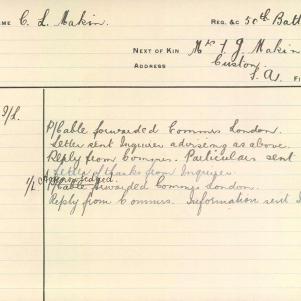 AME C. L. Makin. REG. &C 50th Batt
NEXT OF KIN Mr T. J. Makin
ADDRESS Custon
S.A. F
P/Cable forwarded Commrs London.
Letter sent Inquirer advising as above.
Reply from Comrs. Particulars sent
Letter of thanks from Inquirer.
Acknowledged.
P/Cable forwarded Commrs London.
Reply from Commrs. Information sent I